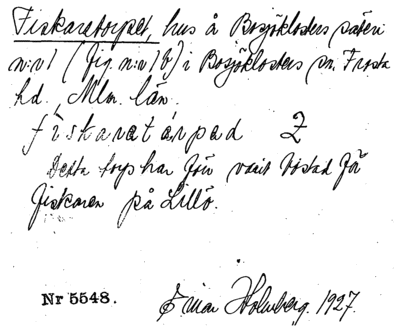 Fiskaretorpet, hus å Bosjöklosters säteri
n:r 1 (fig. n:r 1 b) i Bosjöklosters sn. Frosta
hd., Mlm. län.
fiskaratårpad 2
Detta torp har förr varit bostad för
fiskaren på Lillö.
Nr 5548.
Einar Holmberg. 1927.